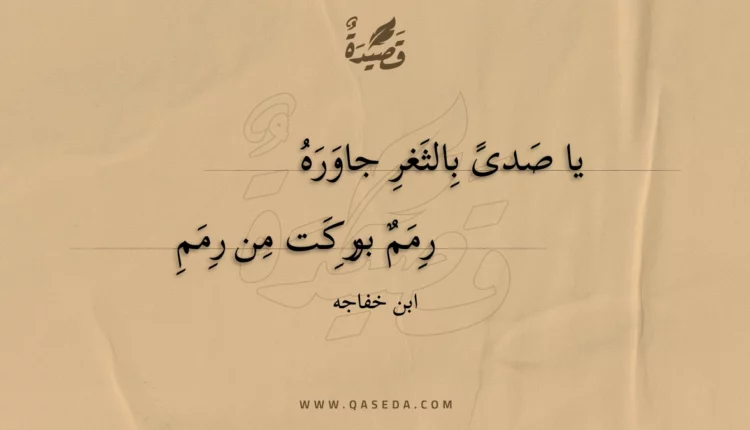 قَصِيدَةٌ
يا صَدىً بِالثَغرِ جاوَرَهُ
رِمَمٌ بورِكَت مِن رِمَمِ
ابن خفاجه
WWW.QASEDA.COM